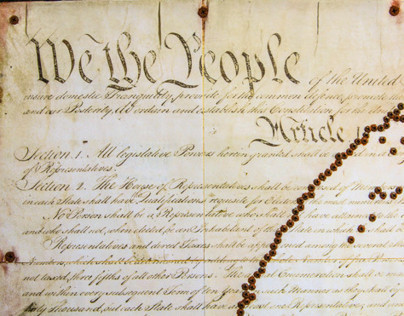 We the People of the United
insure domestic Tranquility, provide for the common defence, promote the
and our Posterity, do ordain and establish this Constitution for the United
Article 1
Section. 1. All legislative Powers herein granted shall be vested in a
of Representatives.
Section. 2. The House of Representatives shall be composed of Members
in each State shall have Qualifications requisite for Electors of the most numerous
No Person shall be a Representative who shall not have attained to the
and who shall not, when elected, be an Inhabitant of that State in which he shall
Representatives and direct Taxes shall be apportioned among the several
not taxed, three fifths of all other Persons. The actual Enumeration shall be
and within every subsequent Term of ten Years, in such Manner as they shall by
thirty Thousand, but each State shall have at Least one Representative; and